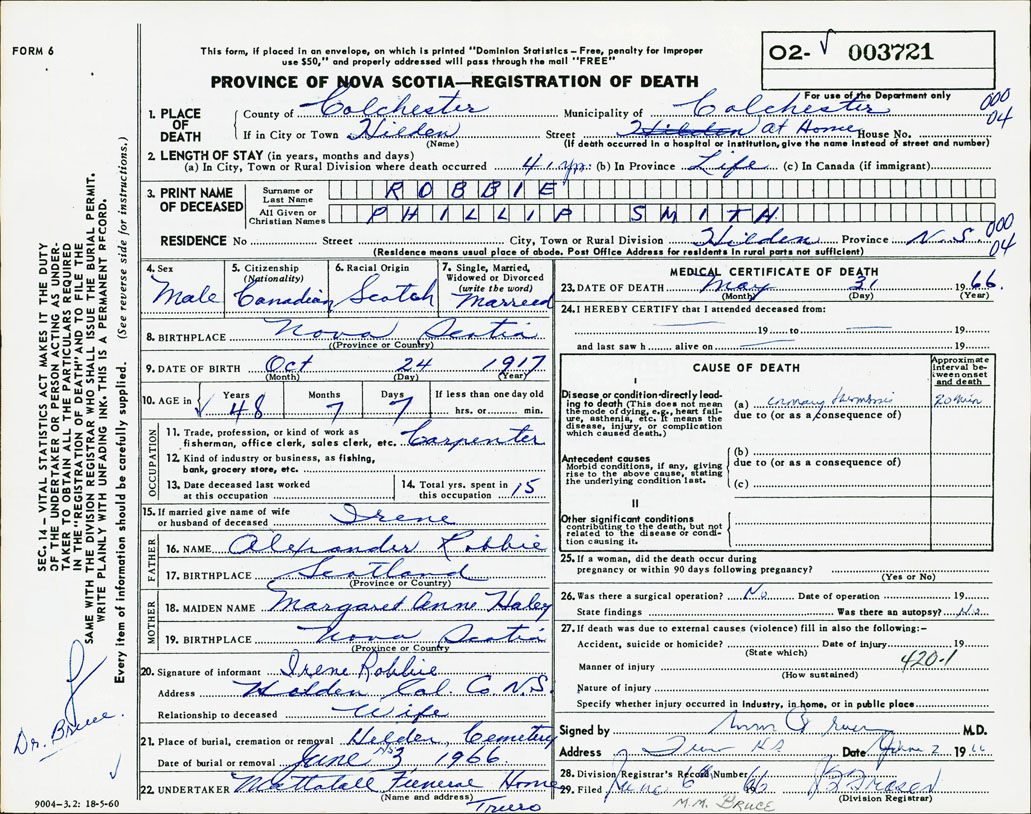 FORM 6
This form, if placed in an envelope, on which is printed "Dominion Statistics – Free, penalty for improper
use $50," and properly addressed will pass through the mail "FREE"
O2- √ 003721
PROVINCE OF NOVA SCOTIA—REGISTRATION OF DEATH
For use of the Department only
1. PLACE OF DEATH County of Colchester Municipality of Colchester 000 04
If in City or Town Hilden (Name) Street Hilden at Home House No.
(If death occurred in a hospital or institution, give the name instead of street and number)
2. LENGTH OF STAY (in years, months and days)
(a) In City, Town or Rural Division where death occurred 41 yrs. (b) In Province Life (c) In Canada (if immigrant)
3. PRINT NAME OF DECEASED Surname or Last Name ROBBIE
All Given or Christian Names PHILLIP SMITH
RESIDENCE No Street City, Town or Rural Division Hilden Province N.S. 000 04
(Residence means usual place of abode. Post Office Address for residents in rural parts not sufficient)
4. Sex Male
5. Citizenship (Nationality) Canadian
6. Racial Origin Scotch
7. Single, Married, Widowed or Divorced (write the word) Married
8. BIRTHPLACE Nova Scotia
(Province or Country)
9. DATE OF BIRTH Oct 24 1917
(Month) (Day) (Year)
10. AGE in √ Years 48 Months 7 Days 7 If less than one day old hrs. or min.
OCCUPATION
11. Trade, profession, or kind of work as
fisherman, office clerk, sales clerk, etc. Carpenter
12. Kind of industry or business, as fishing,
bank, grocery store, etc.
13. Date deceased last worked at this occupation
14. Total yrs. spent in this occupation 15
15. If married give name of wife
or husband of deceased Irene
FATHER
16. NAME Alexander Robbie
17. BIRTHPLACE Scotland
(Province or Country)
MOTHER
18. MAIDEN NAME Margaret Anne Haley
19. BIRTHPLACE Nova Scotia
(Province or Country)
20. Signature of informant Irene Robbie
Address Holden Col. Co. N.S.
Relationship to deceased Wife
21. Place of burial, cremation or removal Hilden Cemetery
Date of burial or removal June 3, 1966
22. UNDERTAKER Mattatall Funeral Home
(Name and address) Truro
MEDICAL CERTIFICATE OF DEATH
23. DATE OF DEATH May 31 1966
(Month) (Day) (Year)
24. I HEREBY CERTIFY that I attended deceased from:
19 to 19
and last saw h alive on 19
CAUSE OF DEATH
Approximate interval between onset and death
I
Disease or condition directly leading to death (This does not mean
the mode of dying, e.g., heart failure, asthenia, etc. It means the
disease, injury, or complication
which caused death.)
(a) coronary thrombosis 20 min
due to (or as a consequence of)
Antecedent causes
Morbid conditions, if any, giving
rise to the above cause, stating
the underlying condition last.
(b)
due to (or as a consequence of)
(c)
II
Other significant conditions
contributing to the death, but not
related to the disease or condition causing it.
25. If a woman, did the death occur during
pregnancy or within 90 days following pregnancy?
(Yes or No)
26. Was there a surgical operation? No Date of operation 19
State findings Was there an autopsy? No
27. If death was due to external causes (violence) fill in also the following:–
Accident, suicide or homicide? Date of injury 19
(State which) 420-1
Manner of injury
(How sustained)
Nature of injury
Specify whether injury occurred in industry, in home, or in public place
Signed by M.D.
Address Truro N.S. Date June 2 1966
28. Division Registrar's Record Number
29. Filed June 6 66
(Division Registrar)
M.M. BRUCE
SEC. 14 – VITAL STATISTICS ACT MAKES IT THE DUTY
OF THE UNDERTAKER OR PERSON ACTING AS UNDERTAKER TO OBTAIN ALL THE PARTICULARS REQUIRED
IN THE "REGISTRATION OF DEATH" AND TO FILE THE
SAME WITH THE DIVISION REGISTRAR WHO SHALL ISSUE THE BURIAL PERMIT.
WRITE PLAINLY WITH UNFADING INK. THIS IS A PERMANENT RECORD.
Every item of information should be carefully supplied. (See reverse side for instructions.)
Dr. Bruce.
√
9004-3.2: 18-5-60